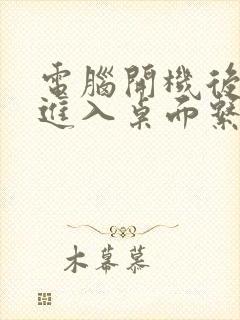 電腦開機後
進入桌面繫
木幕慕